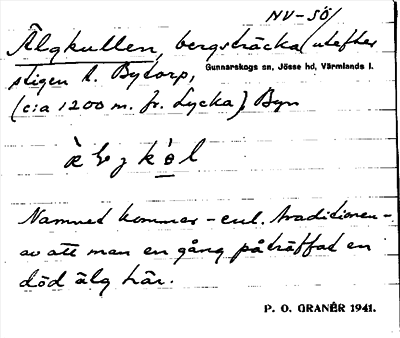 NV-SÖ/
Älgkullen, bergsträcka utefter
stigen t. Bytorp, Gunnarskogs sn, Jösse hd, Värmlands l.
(c:a 1200 m. fr. Lycka), Byn
Namnet kommer - enl. traditionen -
av att man en gång påträffat en
död älg här.
P. O. GRANÉR 1941.